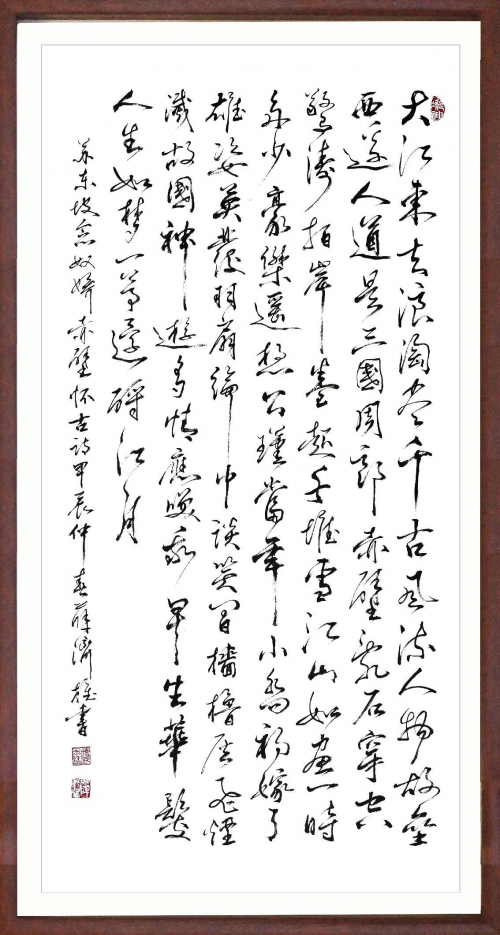 大江東去浪淘尽千古風流人物故壘
西邊人道是三國周郎赤壁乱石穿空
驚濤拍岸卷起千堆雪江山如画一時
多少豪傑遥想公瑾當年小喬初嫁了
雄姿英發羽扇綸巾談笑间檣櫓灰飛煙
滅故國神遊多情應笑我早生華髮
人生如梦一尊還酹江月
苏东坡念奴娇赤壁怀古诗甲辰仲春薛濟雄書